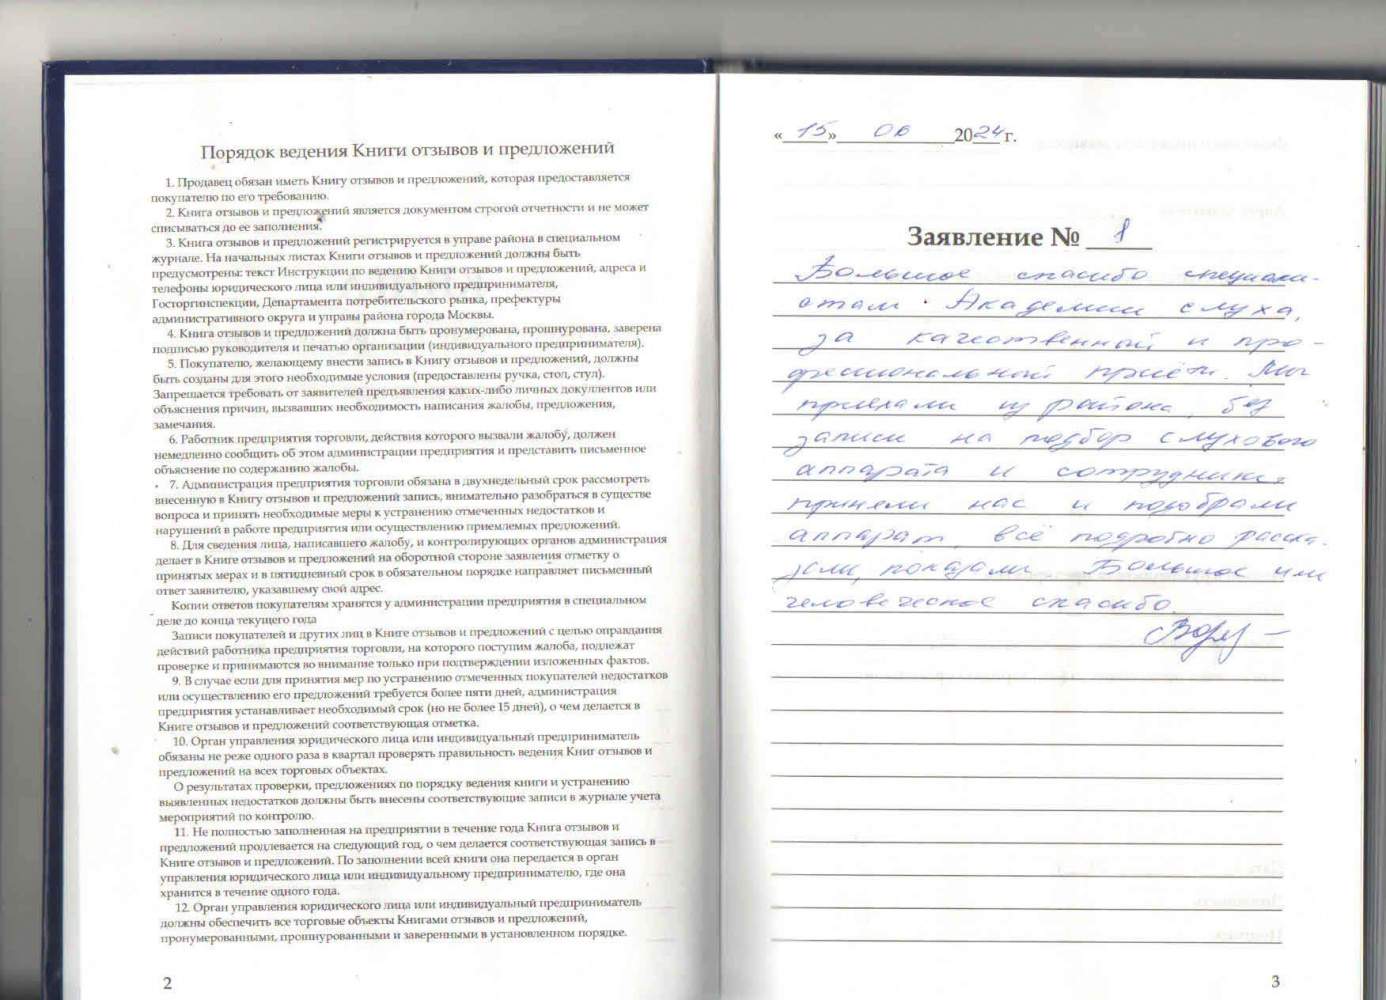 Порядок ведения Книги отзывов и предложений
1. Продавец обязан иметь Книгу отзывов и предложений, которая предоставляется
покупателю по его требованию.
2. Книга отзывов и предложений является документом строгой отчетности и не может
списываться до ее заполнения.
3. Книга отзывов и предложений регистрируется в управе района в специальном
журнале. На начальных листах Книги отзывов и предложений должны быть
предусмотрены: текст Инструкции по ведению Книги отзывов и предложений, адреса и
телефоны юридического лица или индивидуального предпринимателя,
Госторгинспекции, Департамента потребительского рынка, префектуры
административного округа и управы района города Москвы.
4. Книга отзывов и предложений должна быть пронумерована, прошнурована, заверена
подписью руководителя и печатью организации (индивидуального предпринимателя).
5. Покупателю, желающему внести запись в Книгу отзывов и предложений, должны
быть созданы для этого необходимые условия (предоставлены ручка, стол, стул).
Запрещается требовать от заявителей предъявления каких-либо личных документов или
объяснения причин, вызвавших необходимость написания жалобы, предложения,
замечания.
6. Работник предприятия торговли, действия которого вызвали жалобу, должен
немедленно сообщить об этом администрации предприятия и представить письменное
объяснение по содержанию жалобы.
7. Администрация предприятия торговли обязана в двухнедельный срок рассмотреть
внесенную в Книгу отзывов и предложений запись, внимательно разобраться в существе
вопроса и принять необходимые меры к устранению отмеченных недостатков и
нарушений в работе предприятия или осуществлению приемлемых предложений.
8. Для сведения лица, написавшего жалобу, и контролирующих органов администрация
делает в Книге отзывов и предложений на оборотной стороне заявления отметку о
принятых мерах и в пятидневный срок в обязательном порядке направляет письменный
ответ заявителю, указавшему свой адрес.
Копии ответов покупателям хранятся у администрации предприятия в специальном
деле до конца текущего года
Записи покупателей и других лиц в Книге отзывов и предложений с целью оправдания
действий работника предприятия торговли, на которого поступим жалоба, подлежат
проверке и принимаются во внимание только при подтверждении изложенных фактов.
9. В случае если для принятия мер по устранению отмеченных покупателей недостатков
или осуществлению его предложений требуется более пяти дней, администрация
предприятия устанавливает необходимый срок (но не более 15 дней), о чем делается в
Книге отзывов и предложений соответствующая отметка.
10. Орган управления юридического лица или индивидуальный предприниматель
обязаны не реже одного раза в квартал проверять правильность ведения Книг отзывов и
предложений на всех торговых объектах.
О результатах проверки, предложениях по порядку ведения книги и устранению
выявленных недостатков должны быть внесены соответствующие записи в журнале учета
мероприятий по контролю.
11. Не полностью заполненная на предприятии в течение года Книга отзывов и
предложений продлевается на следующий год, о чем делается соответствующая запись в
Книге отзывов и предложений. По заполнении всей книги она передается в орган
управления юридического лица или индивидуальному предпринимателю, где она
хранится в течение одного года.
12. Орган управления юридического лица или индивидуальный предприниматель
должны обеспечить все торговые объекты Книгами отзывов и предложений,
пронумерованными, прошнурованными и заверенными в установленном порядке.
2
«15» 06 2024 г.
Заявление № 1
Большое спасибо специали-
стам Академии слуха,
за качественный и про-
фессиональный приём. Мы
приехали из района, без
записи на подбор слухового
аппарата и сотрудники
приняли нас и подобрали
аппарат, всё подробно расска-
зали, показали. Большое им
человеческое спасибо.
3